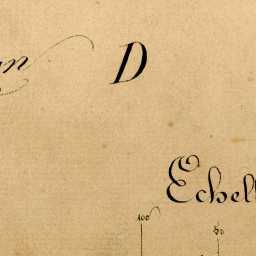 D
Echel
100
50